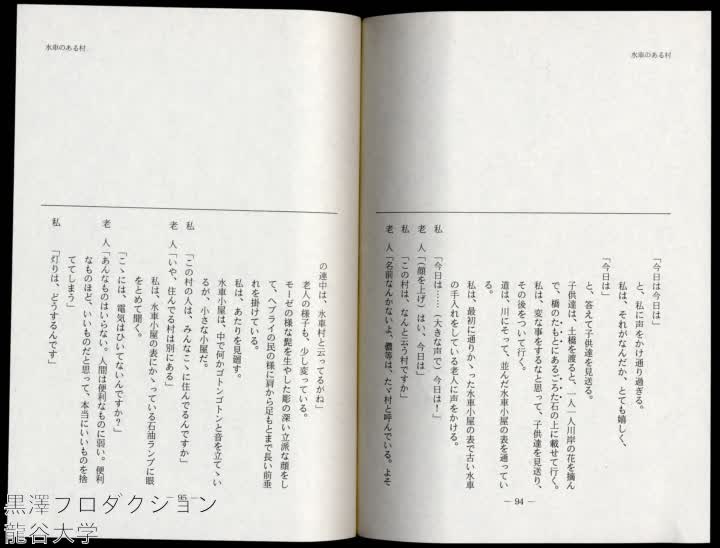 水車のある村
「今日は今日は」
と、私に声をかけ通り過ぎる。
私は、それがなんだか、とても嬉しく、
「今日は」
と、答えて子供達を見送る。
子供達は、土橋を渡ると、一人一人川岸の花を摘ん
で、橋のたもとにあるごろた石の上に載せて行く。
私は、変な事をするなと思って、子供達を見送り、
その後をついて行く。
道は、川にそって、並んだ水車小屋の表を通ってい
る。
私は、最初に通りかゝった水車小屋の表で古い水車
の手入れをしている老人に声をかける。
私　「今日は……（大きな声で）今日は！」
老　人「（顔を上げ）はい、今日は」
私　「この村は、なんと云う村ですか」
老　人「名前なんかないよ、儂等は、たゞ村と呼んでいる。よそ
― 94 ―
水車のある村
の連中は、水車村と云ってるがね」
老人の様子も、少し変っている。
モーゼの様な髭を生やした彫の深い立派な顔をし
て、ヘブライの民の様に肩から足もとまで長い前垂
れを掛けている。
私は、あたりを見廻す。
水車小屋は、中で何かゴトンゴトンと音を立てゝい
るが、小さな小屋だ。
私　「この村の人は、みんなこゝに住んでるんですか」
老　人「いや、住んでる村は別にある」
私は、水車小屋の表にかゝっている石油ランプに眼
をとめて聞く。
「こゝには、電気はひいてないんですか？」
老　人「あんなものはいらない。人間は便利なものに弱い。便利
なものほど、いいものだと思って、本当にいいものを捨
ててしまう」
私　「灯りは、どうするんです」
― 95 ―
黒澤プロダクション
龍谷大学